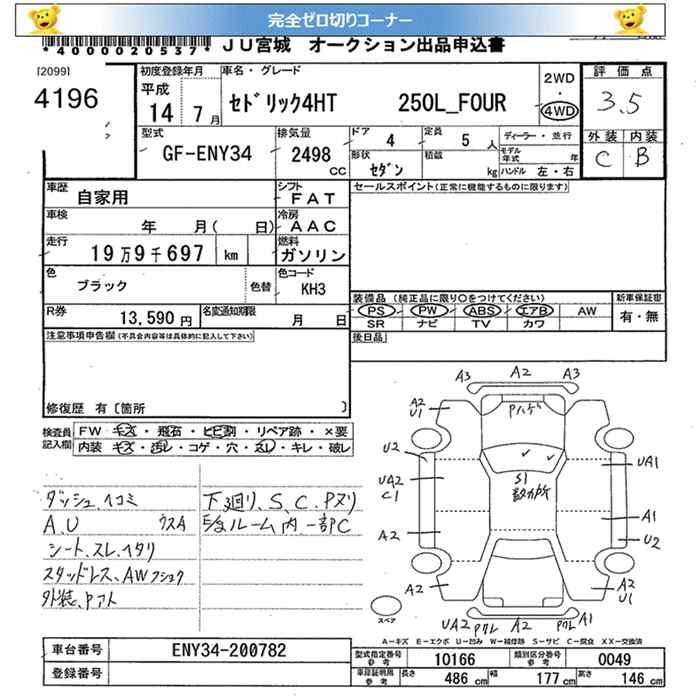 完全ゼロ切りコーナー
*40000020537* JU宮城 オークション出品申込書
[2099]
4196
初度登録年月 平成 14 7月
車名・グレード セドリック4HT 250L_FOUR
2WD 4WD
評価点 3.5
外装 内装
C B
型式 GF-ENY34
排気量 2498 CC
ドア 4
定員 5 人
形状 セダン
積載 kg
ディーラー・並行
モデル年式 年
ハンドル 左・右
車歴 自家用
シフト FAT
セールスポイント(正常に機能するものに限ります)
車検 年 月( 日)
冷房 AAC
走行 19万9千697 km
燃料 ガソリン
色 ブラック
色替
色コード KH3
R券 13,590円
名変通知期限 月 日
装備品 (純正品に限り○をつけてください)
新車保証書
PS PW ABS エアB AW
有・無
SR ナビ TV カワ
注意事項申告欄(不具合内容等は具体的に記入して下さい)
後日品
修復歴 有〔箇所 〕
検査員記入欄
FW キズ・飛石・ヒビ割・リペア跡・×要
内装 キズ・汚レ・コゲ・穴・スレ・キレ・破レ
ダッシュ、ヘコミ
A、U ウスA
シート、スレ、ヘタリ
スタッドレス、AWフショク
外装、Pアト
下廻リ、S、C、Pヌリ
E/gルーム内、一部C
A3 A2 A3
Pハゲ
A2
U1
A2
U2
UA1
UA2
C1
S1
A1
A2
U2
A2
A2
U1
UA2 PワレA2 Pワレ A1
スペア
A－キズ E－エクボ U－凹み W－補修跡 S－サビ C－腐食 XX－交換済
車台番号 ENY34-200782
登録番号
型式指定番号 参考 10166
類別区分番号 参考 0049
車庫証明用 参考 長さ 486 cm 幅 177 cm 高さ 146 cm